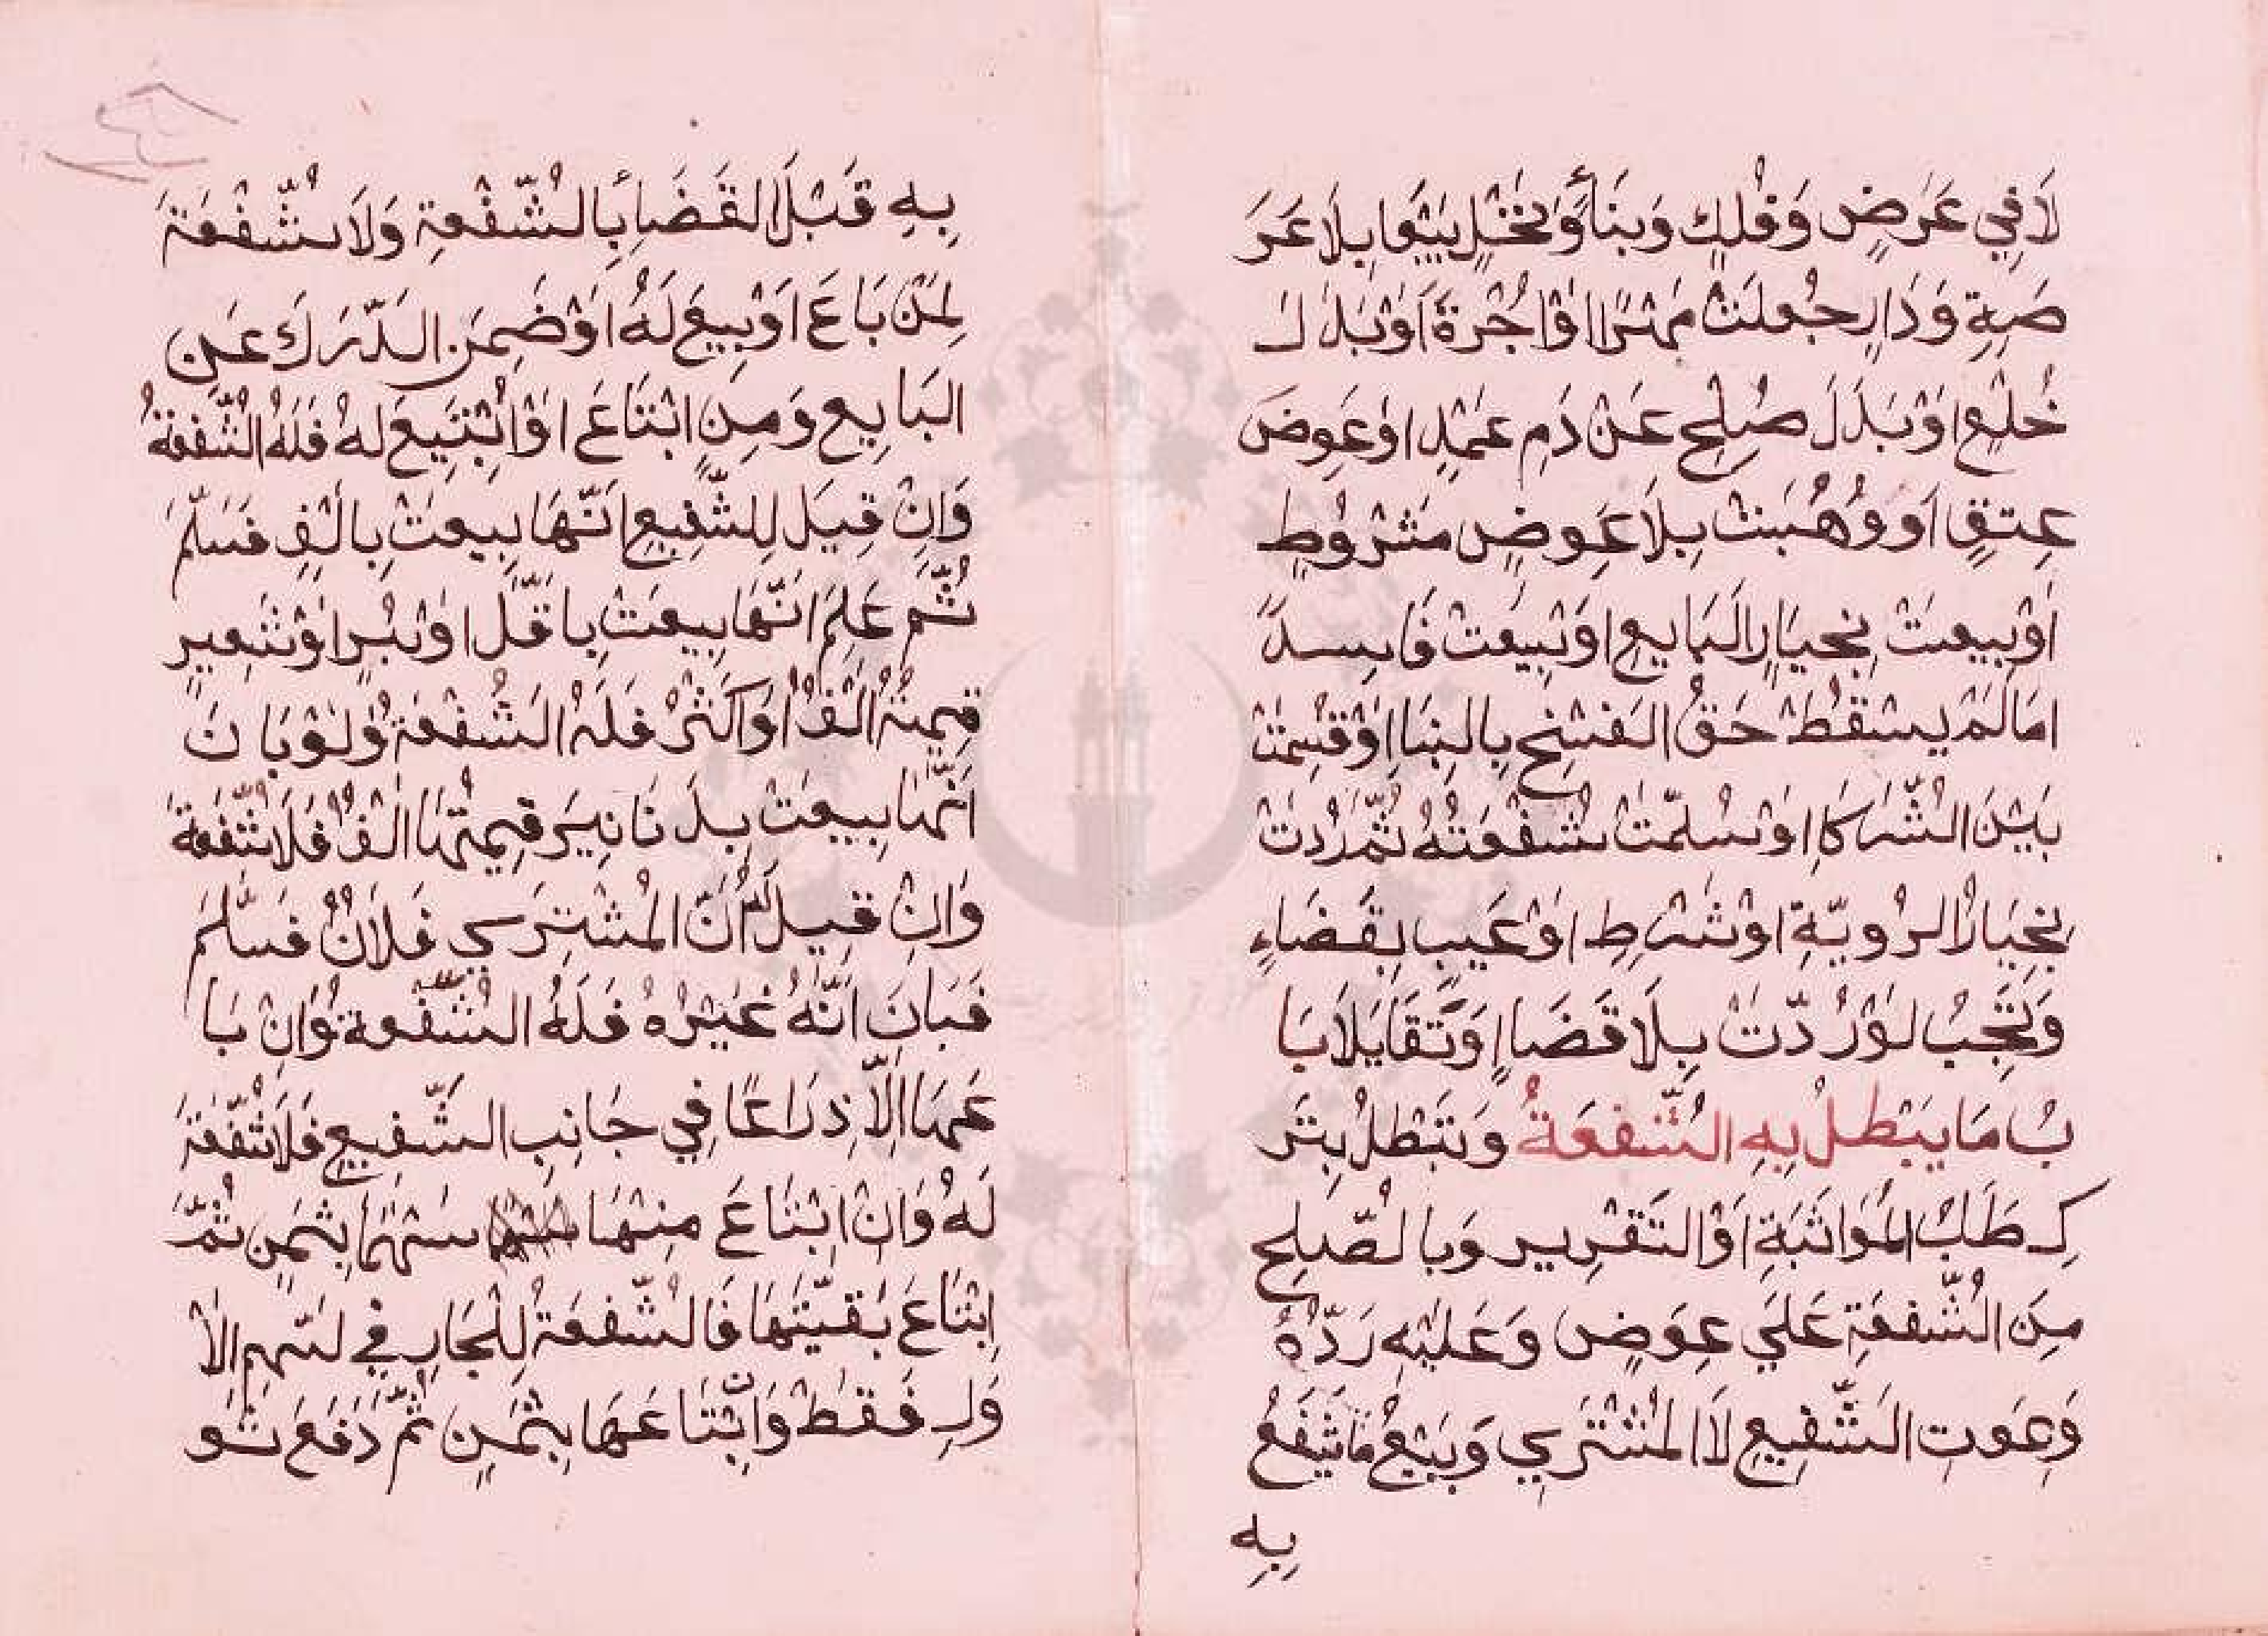 لَا فِي عَرَضٍ وَفُلكٍ وَبِنَأٍ وَنَخْلٍ بِيْعَا بِلَا عَرَ
صَةٍ وَدَارٍ جُعِلَتْ مَهْرًا اَوْ اُجْرَةً اَوْ بَدَلَ
خُلْعٍ اَوْ بَدَلَ صُلحٍ عَنْ دَمِ عَمْدٍ اَوْ عَوِضَ
عِتقٍ اَو وُهُبَتْ بِلَا عَوِضٍ مَشْرُوطٍ
اَوْ بِيعَتْ بِخيَارِ البَايِعِ اَوْ بِيعَتْ فَاسِدًا
مَا لَمْ يسْقُطْ حَقُّ الفَسْخِ بِالبِنَا اَوْ قسِمَتْ
بَيْنَ الشُّرَكَاءِ اَوْ سُلمّتْ شُفْعَتُهُ ثُمَّ رُدتْ
بِخيَارُ الرُويّةِ اَوْ شَرِطٍ اَوْ عَيبٍ بِقَضَاءٍ
وَتجَبُ لَوْ رُدّتْ بِلَا قَضَاءٍ اَوْ تَقَايَلَا بَا
بُ مَا يَبْطلُ بِهِ الشُّفعَةُ وَتَبْطلُ بِتَر
كِ طَلَبُ المُوَاثَبَةِ اَوْ التَقْرِيرِ وَبِالصُّلحِ
مِنَ الشُّفعَةِ عَلَي عِوَضٍ وَعَليْهِ رَدُّهُ
وَعَوتِ الشَّفِيعِ لَا المُشْتَرِي وَبَيْعُ مَا يَشْفَعُ
بِهِ
بِهِ قَبْلَ القَضَأِ بِالشُّفْعَةِ وَلَا شُّفْعَةَ
لِمَنْ بَاعَ اَوْ بِيعَ لَهُ اَوْ ضَمِنَ الدَّرَكَ عَنِ
البَايِعِ وَمِنٍ ابْتَاعَ اَوْ اُبْتَيِعَ لَهُ فَلَهُ الشُّفعَةُ
وَاِنْ قِيَل لِلشَّفِيعِ اَنَّهَا بِيعَتْ بِالْفٍ فَسَلّمَ
ثُمَّ عَلِمَ اَنّهَا بِيعَتْ بِاَقَّل اَوْ بِبُرٍ اَوْ شَعِيرٍ
قِيمتُهُ اَلْفُ اَوْ اَكْثَرْ فَلَهُ الشُفْعَةُ وَلَوْ بَانَ
اَنّهَا بِيعَتْ بِدَنَانِيَر قِيمتُهَا اَلْفُ فَلَا شُفعَةَ
وَاِنْ قِيلَ لَهُ اَنّ المُشْتِرَي فَلَانُ فَسَلّمَ
فَبَانَ اَنَّهُ غَيْرُهُ فَلَهُ الشُّفعَةُ وَاِنْ بَا
عَهَا اِلَّا ذِرَاعًا فِي جَانِبِ الشَّفِيعِ فَلَا شُفْعَةَ
لَهُ وَاِنْ ابْتَاعَ مِنْهَا سَهْمًا بِثمَنٍ ثُمَّ
اِبْتَاعَ بَقِيّتَهَا فَالشُّفعَةُ لِلْجَارِ فِي السّهمِ الاَ
وَلِ فَقَطْ وَاِنْ ابْتَاعَهَا بِثمَنٍ ثُمّ دَفَعَ ثَو